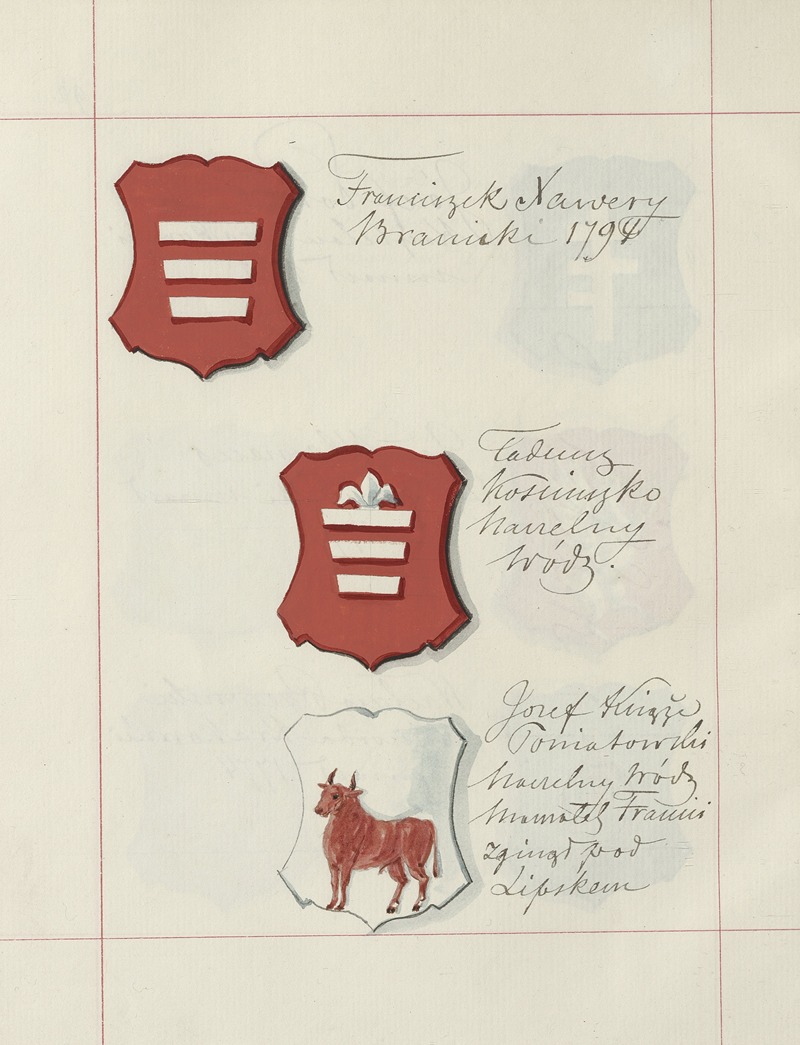 Franciszek Xawery
Branicki 1794
Tadeusz
Kosciuszko
Naczelny
Wódz.
Jozef Książe
Poniatowski
Naczelny Wódz
Francii
zginął pod
Lipskem